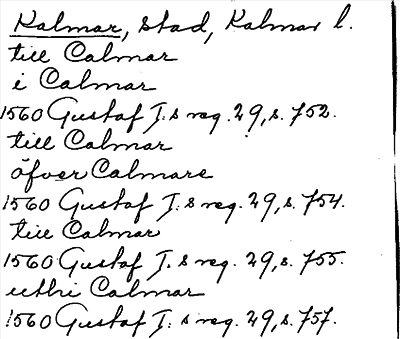 Kalmar, stad, Kalmar l.
till Calmar
i Calmar
1560 Gustaf I:s reg. 29, s. 752.
till Calmar
öfver Calmare
1560 Gustaf I:s reg. 29, s. 754.
till Calmar
1560 Gustaf I.s reg. 29, s. 755.
uthi Calmar
1560 Gustaf I:s reg. 29, s. 757.